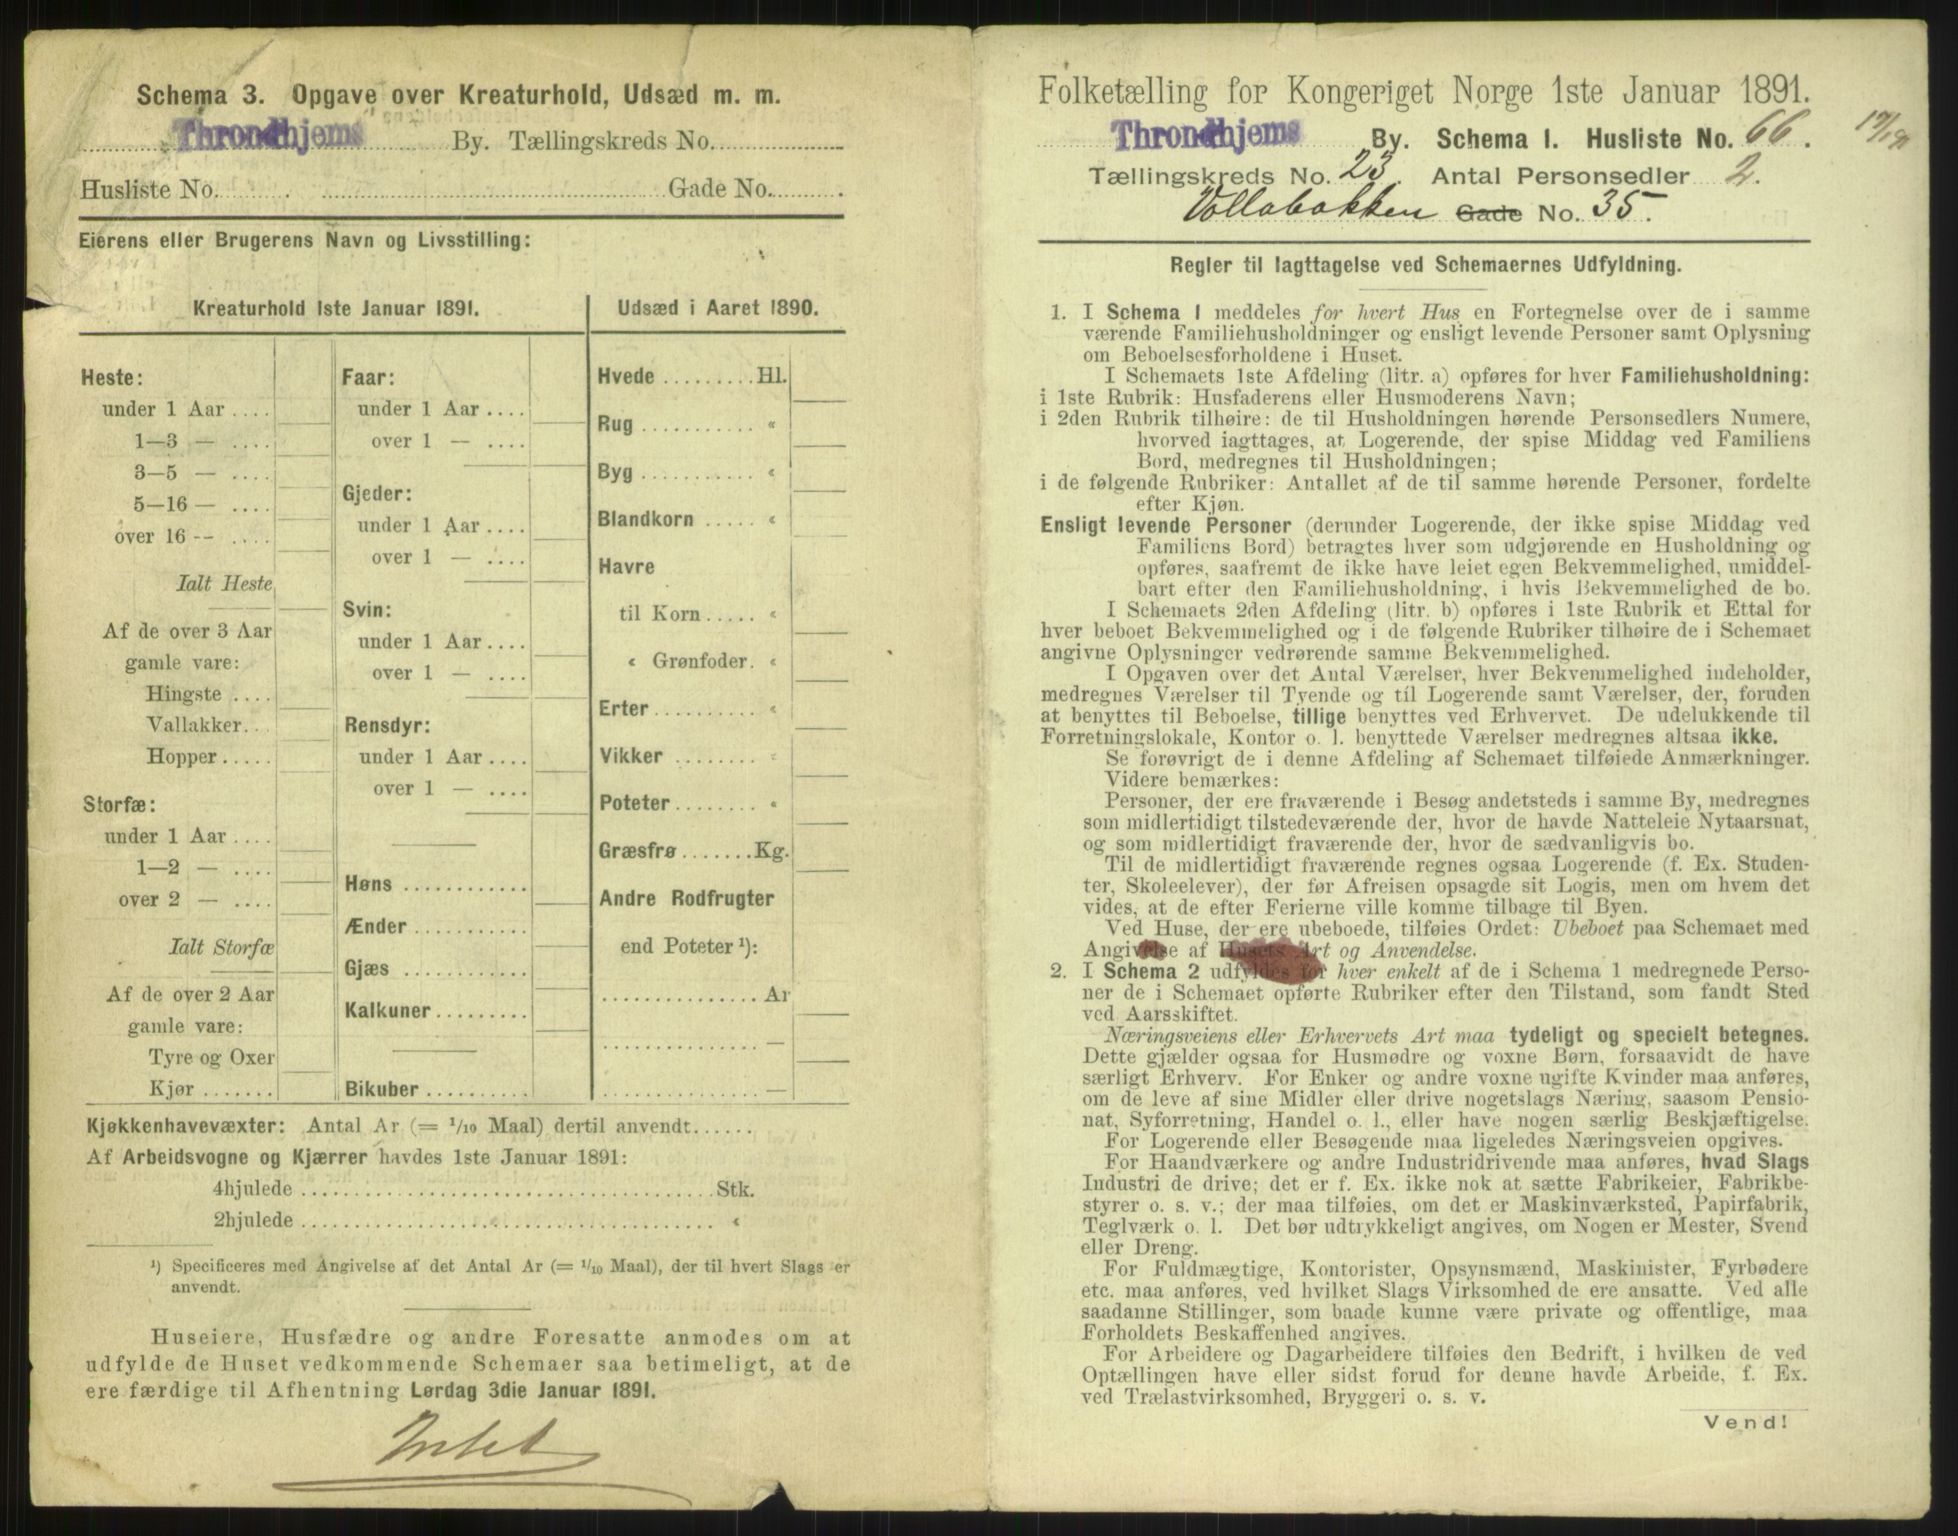 Schema 3. Opgave over Kreaturhold, Udsæd m. m.
Throndhjems By. Tællingskreds No.
Husliste No. Gade No.
Eierens eller Brugerens Navn og Livsstilling:
Kreaturhold 1ste Januar 1891.
Heste:
under 1 Aar ....
1—3 — ....
3—5 — ....
5—16 — ....
over 16 -- ....
Ialt Heste
Af de over 3 Aar
gamle vare:
Hingste ....
Vallakker...
Hopper.....
Storfæ:
under 1 Aar ....
1—2 — ....
over 2 — ....
Ialt Storfæ
Af de over 2 Aar
gamle vare:
Tyre og Oxer
Kjør .......
Faar:
under 1 Aar ....
over 1 — ....
Gjeder:
under 1 Aar ....
over 1 — ....
Svin:
under 1 Aar ....
over 1 — ....
Rensdyr:
under 1 Aar ....
over 1 — ....
Høns ............
Ænder ...........
Gjæs ............
Kalkuner.........
Bikuber ..........
Udsæd i Aaret 1890.
Hvede .........Hl.
Rug ........... «
Byg ........... «
Blandkorn ..... «
Havre
til Korn ..... «
« Grønfoder. «
Erter.......... «
Vikker ........ «
Poteter........ «
Græsfrø.......Kg.
Andre Rodfrugter
end Poteter ¹):
............... Ar
............... —
............... —
Kjøkkenhavevæxter: Antal Ar (= 1/10 Maal) dertil anvendt......
Af Arbeidsvogne og Kjærrer havdes 1ste Januar 1891:
4hjulede ......................................Stk.
2hjulede ...................................... «
¹) Specificeres med Angivelse af det Antal Ar (= 1/10 Maal), der til hvert Slags er
anvendt.
Huseiere, Husfædre og andre Foresatte anmodes om at
udfylde de Huset vedkommende Schemaer saa betimeligt, at de
ere færdige til Afhentning Lørdag 3die Januar 1891.
Intet
Folketælling for Kongeriget Norge 1ste Januar 1891.
Throndhjems By. Schema I. Husliste No. 66.
Tællingskreds No. 23. Antal Personsedler 2.
Vollabakken Gade No. 35.
Regler til Iagttagelse ved Schemaernes Udfyldning.
1. I Schema I meddeles for hvert Hus en Fortegnelse over de i samme
værende Familiehusholdninger og ensligt levende Personer samt Oplysning
om Beboelsesforholdene i Huset.
I Schemaets 1ste Afdeling (litr. a) opføres for hver Familiehusholdning:
i 1ste Rubrik: Husfaderens eller Husmoderens Navn;
i 2den Rubrik tilhøire: de til Husholdningen hørende Personsedlers Numere,
hvorved iagttages, at Logerende, der spise Middag ved Familiens
Bord, medregnes til Husholdningen;
i de følgende Rubriker: Antallet af de til samme hørende Personer, fordelte
efter Kjøn.
Ensligt levende Personer (derunder Logerende, der ikke spise Middag ved
Familiens Bord) betragtes hver som udgjørende en Husholdning og
opføres, saafremt de ikke have leiet egen Bekvemmelighed, umiddel-
bart efter den Familiehusholdning, i hvis Bekvemmelighed de bo.
I Schemaets 2den Afdeling (litr. b) opføres i 1ste Rubrik et Ettal for
hver beboet Bekvemmelighed og i de følgende Rubriker tilhøire de i Schemaet
angivne Oplysninger vedrørende samme Bekvemmelighed.
I Opgaven over det Antal Værelser, hver Bekvemmelighed indeholder,
medregnes Værelser til Tyende og til Logerende samt Værelser, der, foruden
at benyttes til Beboelse, tillige benyttes ved Erhvervet. De udelukkende til
Forretningslokale, Kontor o. l. benyttede Værelser medregnes altsaa ikke.
Se forøvrigt de i denne Afdeling af Schemaet tilføiede Anmærkninger.
Videre bemærkes:
Personer, der ere fraværende i Besøg andetsteds i samme By, medregnes
som midlertidigt tilstedeværende der, hvor de havde Natteleie Nytaarsnat,
og som midlertidigt fraværende der, hvor de sædvanligvis bo.
Til de midlertidigt fraværende regnes ogsaa Logerende (f. Ex. Studen-
ter, Skoleelever), der før Afreisen opsagde sit Logis, men om hvem det
vides, at de efter Ferierne ville komme tilbage til Byen.
Ved Huse, der ere ubeboede, tilføies Ordet: Ubeboet paa Schemaet med
Angivelse af Husets Art og Anvendelse.
2. I Schema 2 udfyldes for hver enkelt af de i Schema 1 medregnede Perso-
ner de i Schemaet opførte Rubriker efter den Tilstand, som fandt Sted
ved Aarsskiftet.
Næringsveiens eller Erhvervets Art maa tydeligt og specielt betegnes.
Dette gjælder ogsaa for Husmødre og voxne Børn, forsaavidt de have
særligt Erhverv. For Enker og andre voxne ugifte Kvinder maa anføres,
om de leve af sine Midler eller drive nogetslags Næring, saasom Pensio-
nat, Syforretning, Handel o. l., eller have nogen særlig Beskjæftigelse.
For Logerende eller Besøgende maa ligeledes Næringsveien opgives.
For Haandværkere og andre Industridrivende maa anføres, hvad Slags
Industri de drive; det er f. Ex. ikke nok at sætte Fabrikeier, Fabrikbe-
styrer o. s. v.; der maa tilføies, om det er Maskinværksted, Papirfabrik,
Teglværk o. l. Det bør udtrykkeligt angives, om Nogen er Mester, Svend
eller Dreng.
For Fuldmægtige, Kontorister, Opsynsmænd, Maskinister, Fyrbødere
etc. maa anføres, ved hvilket Slags Virksomhed de ere ansatte. Ved alle
saadanne Stillinger, som baade kunne være private og offentlige, maa
Forholdets Beskaffenhed angives.
For Arbeidere og Dagarbeidere tilføies den Bedrift, i hvilken de ved
Optællingen have eller sidst forud for denne havde Arbeide, f. Ex.
ved Trælastvirksomhed, Bryggeri o. s. v.
Vend!